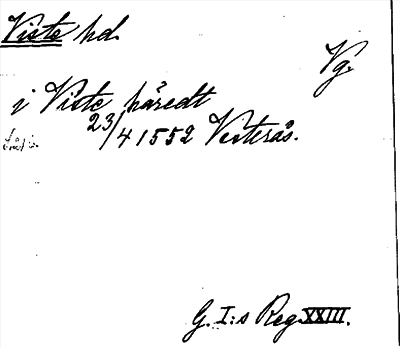 Viste hd.
Vg.
i Viste häredt
23/4 1552 Vesterås.
G. I:s Reg. XXIII.